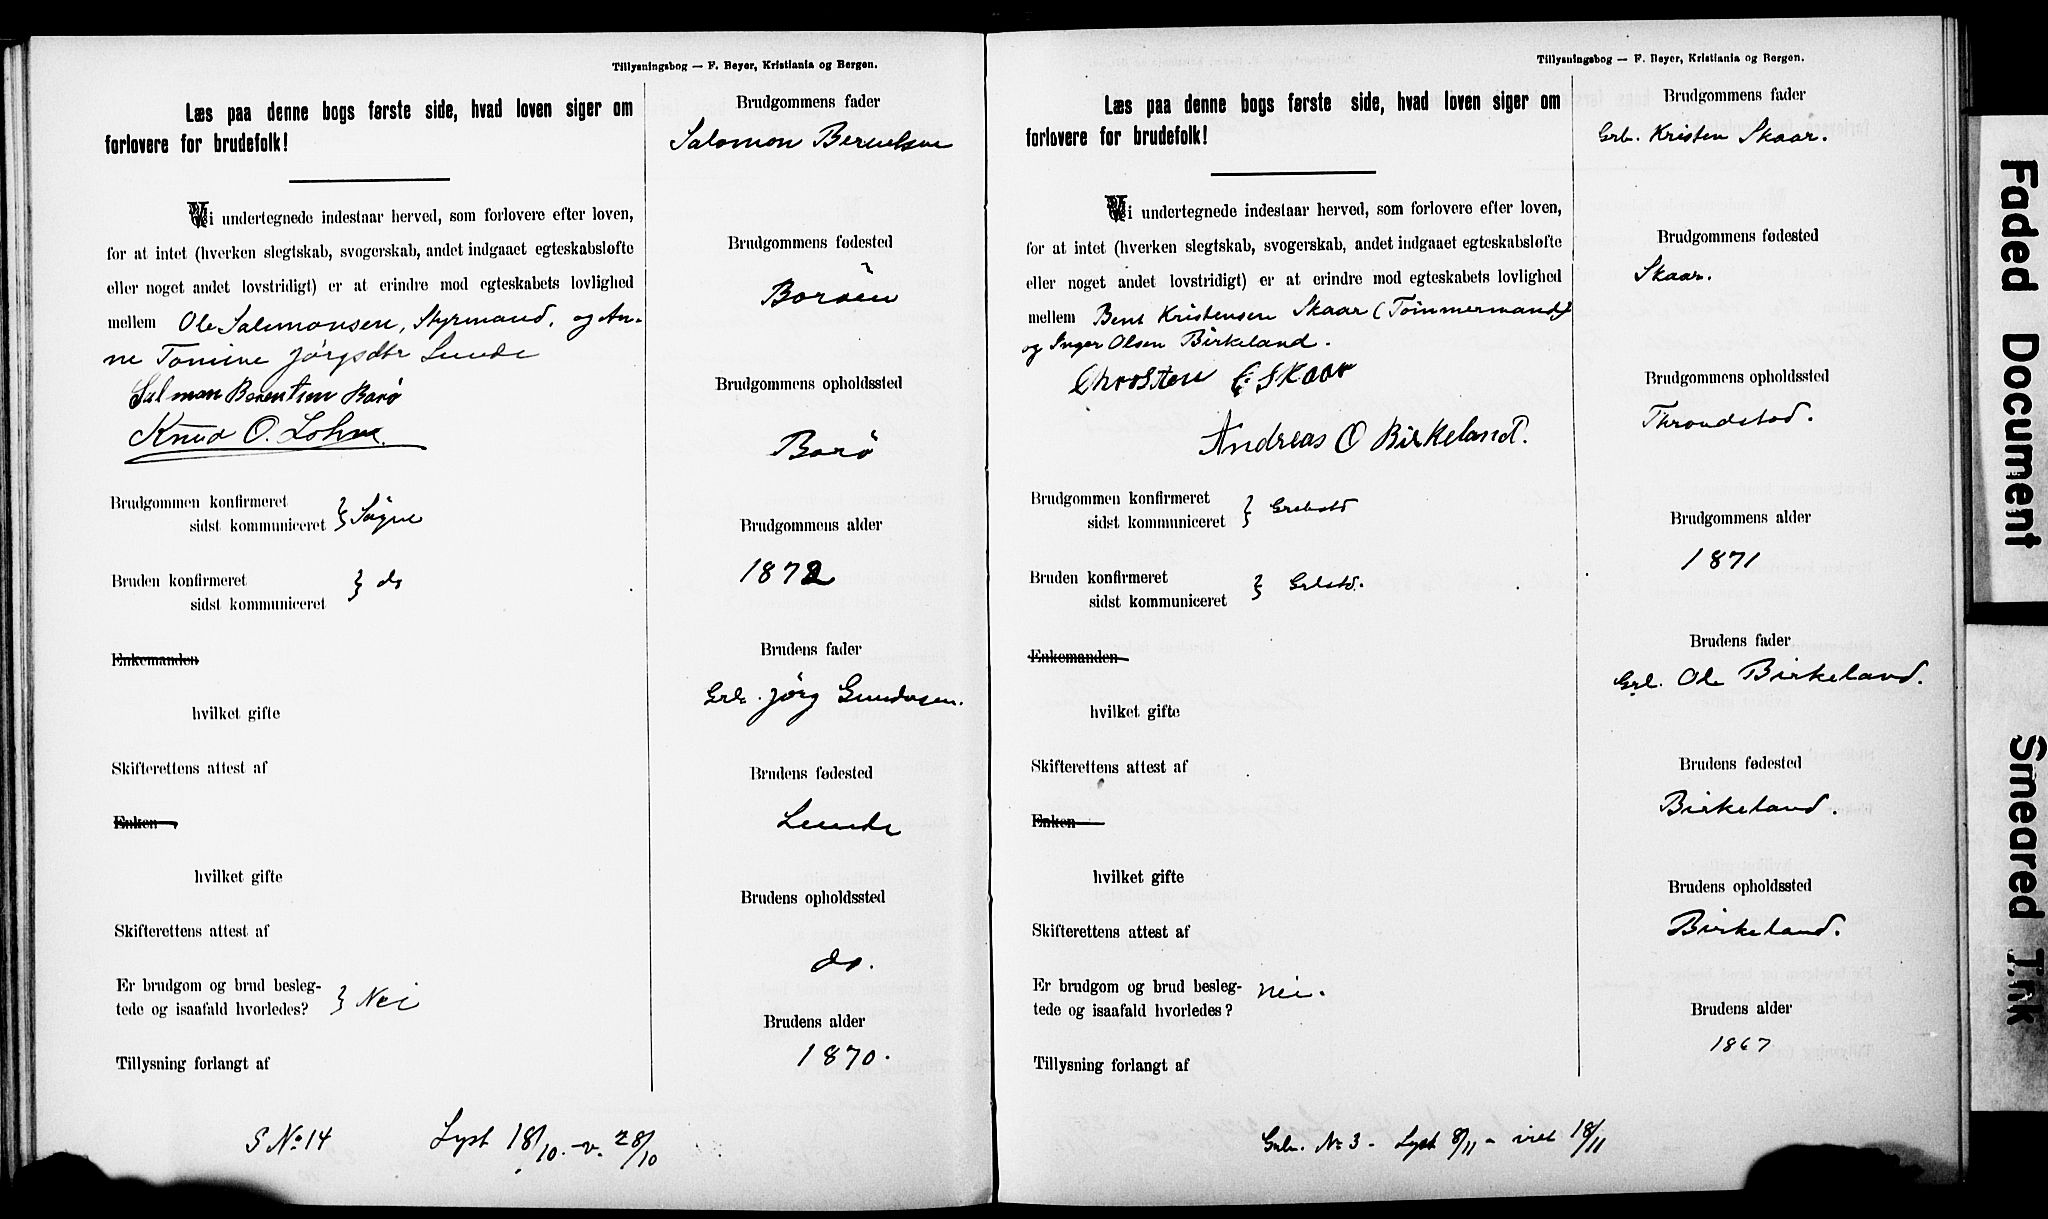 Tillysningsbog — F. Beyer, Kristiania og Bergen.
Læs paa denne bogs første side, hvad loven siger om
forlovere for brudefolk!
Vi undertegnede indestaar herved, som forlovere efter loven,
for at intet (hverken slegtskab, svogerskab, andet indgaaet egteskabsløfte
eller noget andet lovstridigt) er at erindre mod egteskabets lovlighed
mellem Ole Salomonsen, Styrmand, og An-
ne Tomine Jørgsdtr Lunde
Salman Berentsen Barø
Knud O. Lohne.
Brudgommen konfirmeret
sidst kommuniceret } Søgne
Bruden konfirmeret
sidst kommuniceret } do
Enkemanden
hvilket gifte
Skifterettens attest af
Enken
hvilket gifte
Skifterettens attest af
Er brudgom og brud besleg-
tede og isaafald hvorledes? } Nei
Tillysning forlangt af
Brudgommens fader
Salomon
Brudgommens fødested
Borøen
Brudgommens opholdssted
Borø
Brudgommens alder
1872
Brudens fader
Grb. Jørg
Brudens fødested
Lunde
Brudens opholdssted
do.
Brudens alder
1870.
S No 14 Lyst 18/10. - v. 28/10
Tillysningsbog — F. Beyer, Kristiania og Bergen.
Læs paa denne bogs første side, hvad loven siger om
forlovere for brudefolk!
Vi undertegnede indestaar herved, som forlovere efter loven,
for at intet (hverken slegtskab, svogerskab, andet indgaaet egteskabsløfte
eller noget andet lovstridigt) er at erindre mod egteskabets lovlighed
mellem Bent Kristensen Skaar (Tømmermand)
og Inger Olsen Birkeland.
C Skaar
Andreas O Birkeland.
Brudgommen konfirmeret
sidst kommuniceret }
Bruden konfirmeret
sidst kommuniceret }
Enkemanden
hvilket gifte
Skifterettens attest af
Enken
hvilket gifte
Skifterettens attest af
Er brudgom og brud besleg-
tede og isaafald hvorledes? nei.
Tillysning forlangt af
Brudgommens fader
Grb. Kristen Skaar.
Brudgommens fødested
Skaar.
Brudgommens opholdssted
Throndstad.
Brudgommens alder
1871
Brudens fader
Grb. Ole Birkeland.
Brudens fødested
Birkeland.
Brudens opholdssted
Birkeland.
Brudens alder
1867
No 3 - Lyst 8/11 - viet 18/11
Faded Document
Smeared Ink